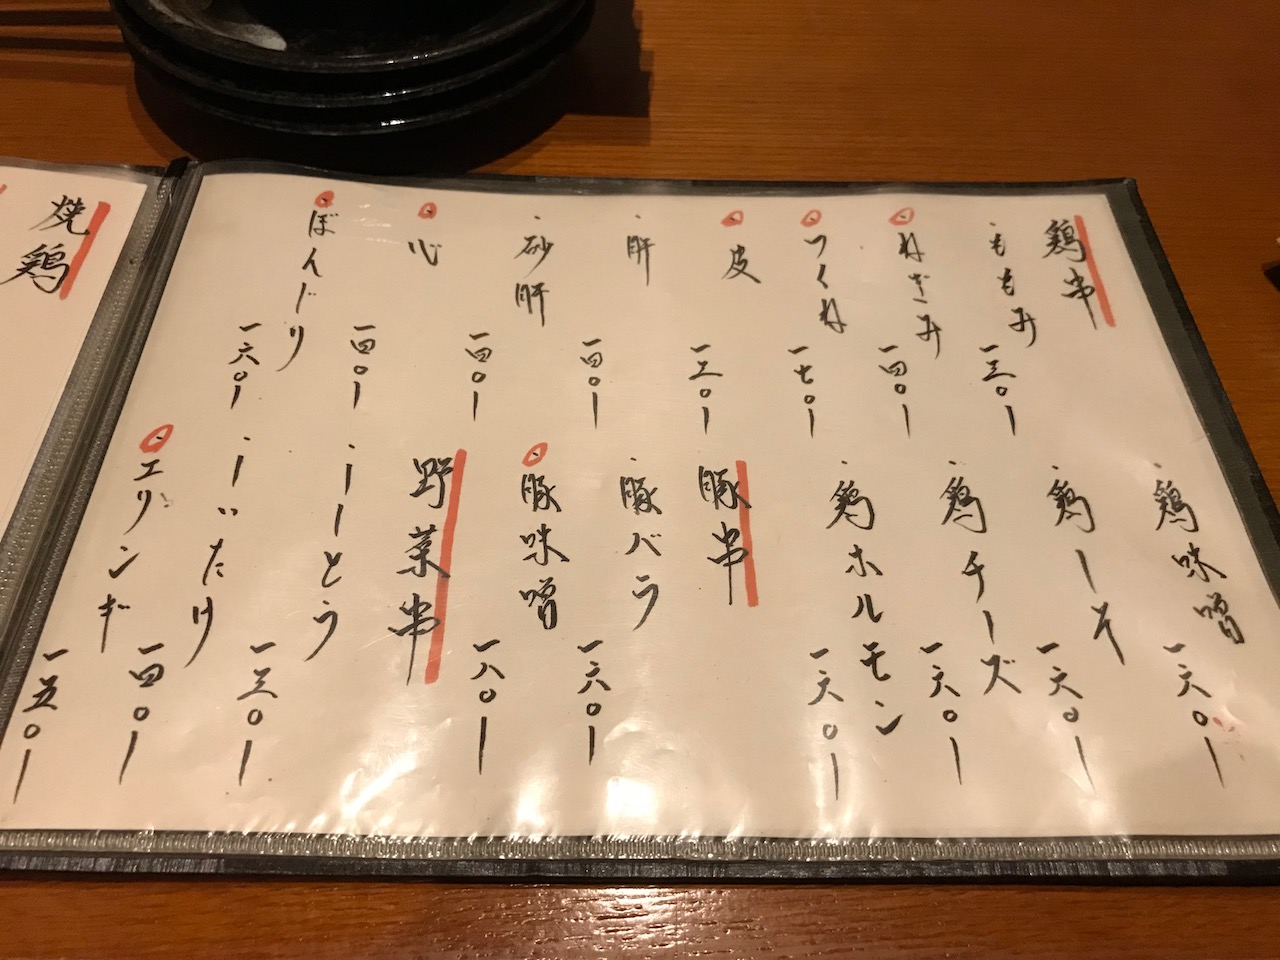 鶏串
・ももみ 一三〇ー
・ねぎみ 一四〇ー
・つくね 一七〇ー
・皮 一三〇ー
・肝 一四〇ー
・砂肝 一四〇ー
・心 一四〇ー
・ぼんじり 一六〇ー
・鶏味噌 一六〇ー
・鶏しそ 一六〇ー
・鶏チーズ 一六〇ー
・鶏ホルモン 一六〇ー
豚串
・豚バラ 一六〇ー
・豚味噌 一八〇ー
野菜串
・ししとう 一三〇ー
・しいたけ 一四〇ー
・エリンギ 一五〇ー
焼鶏